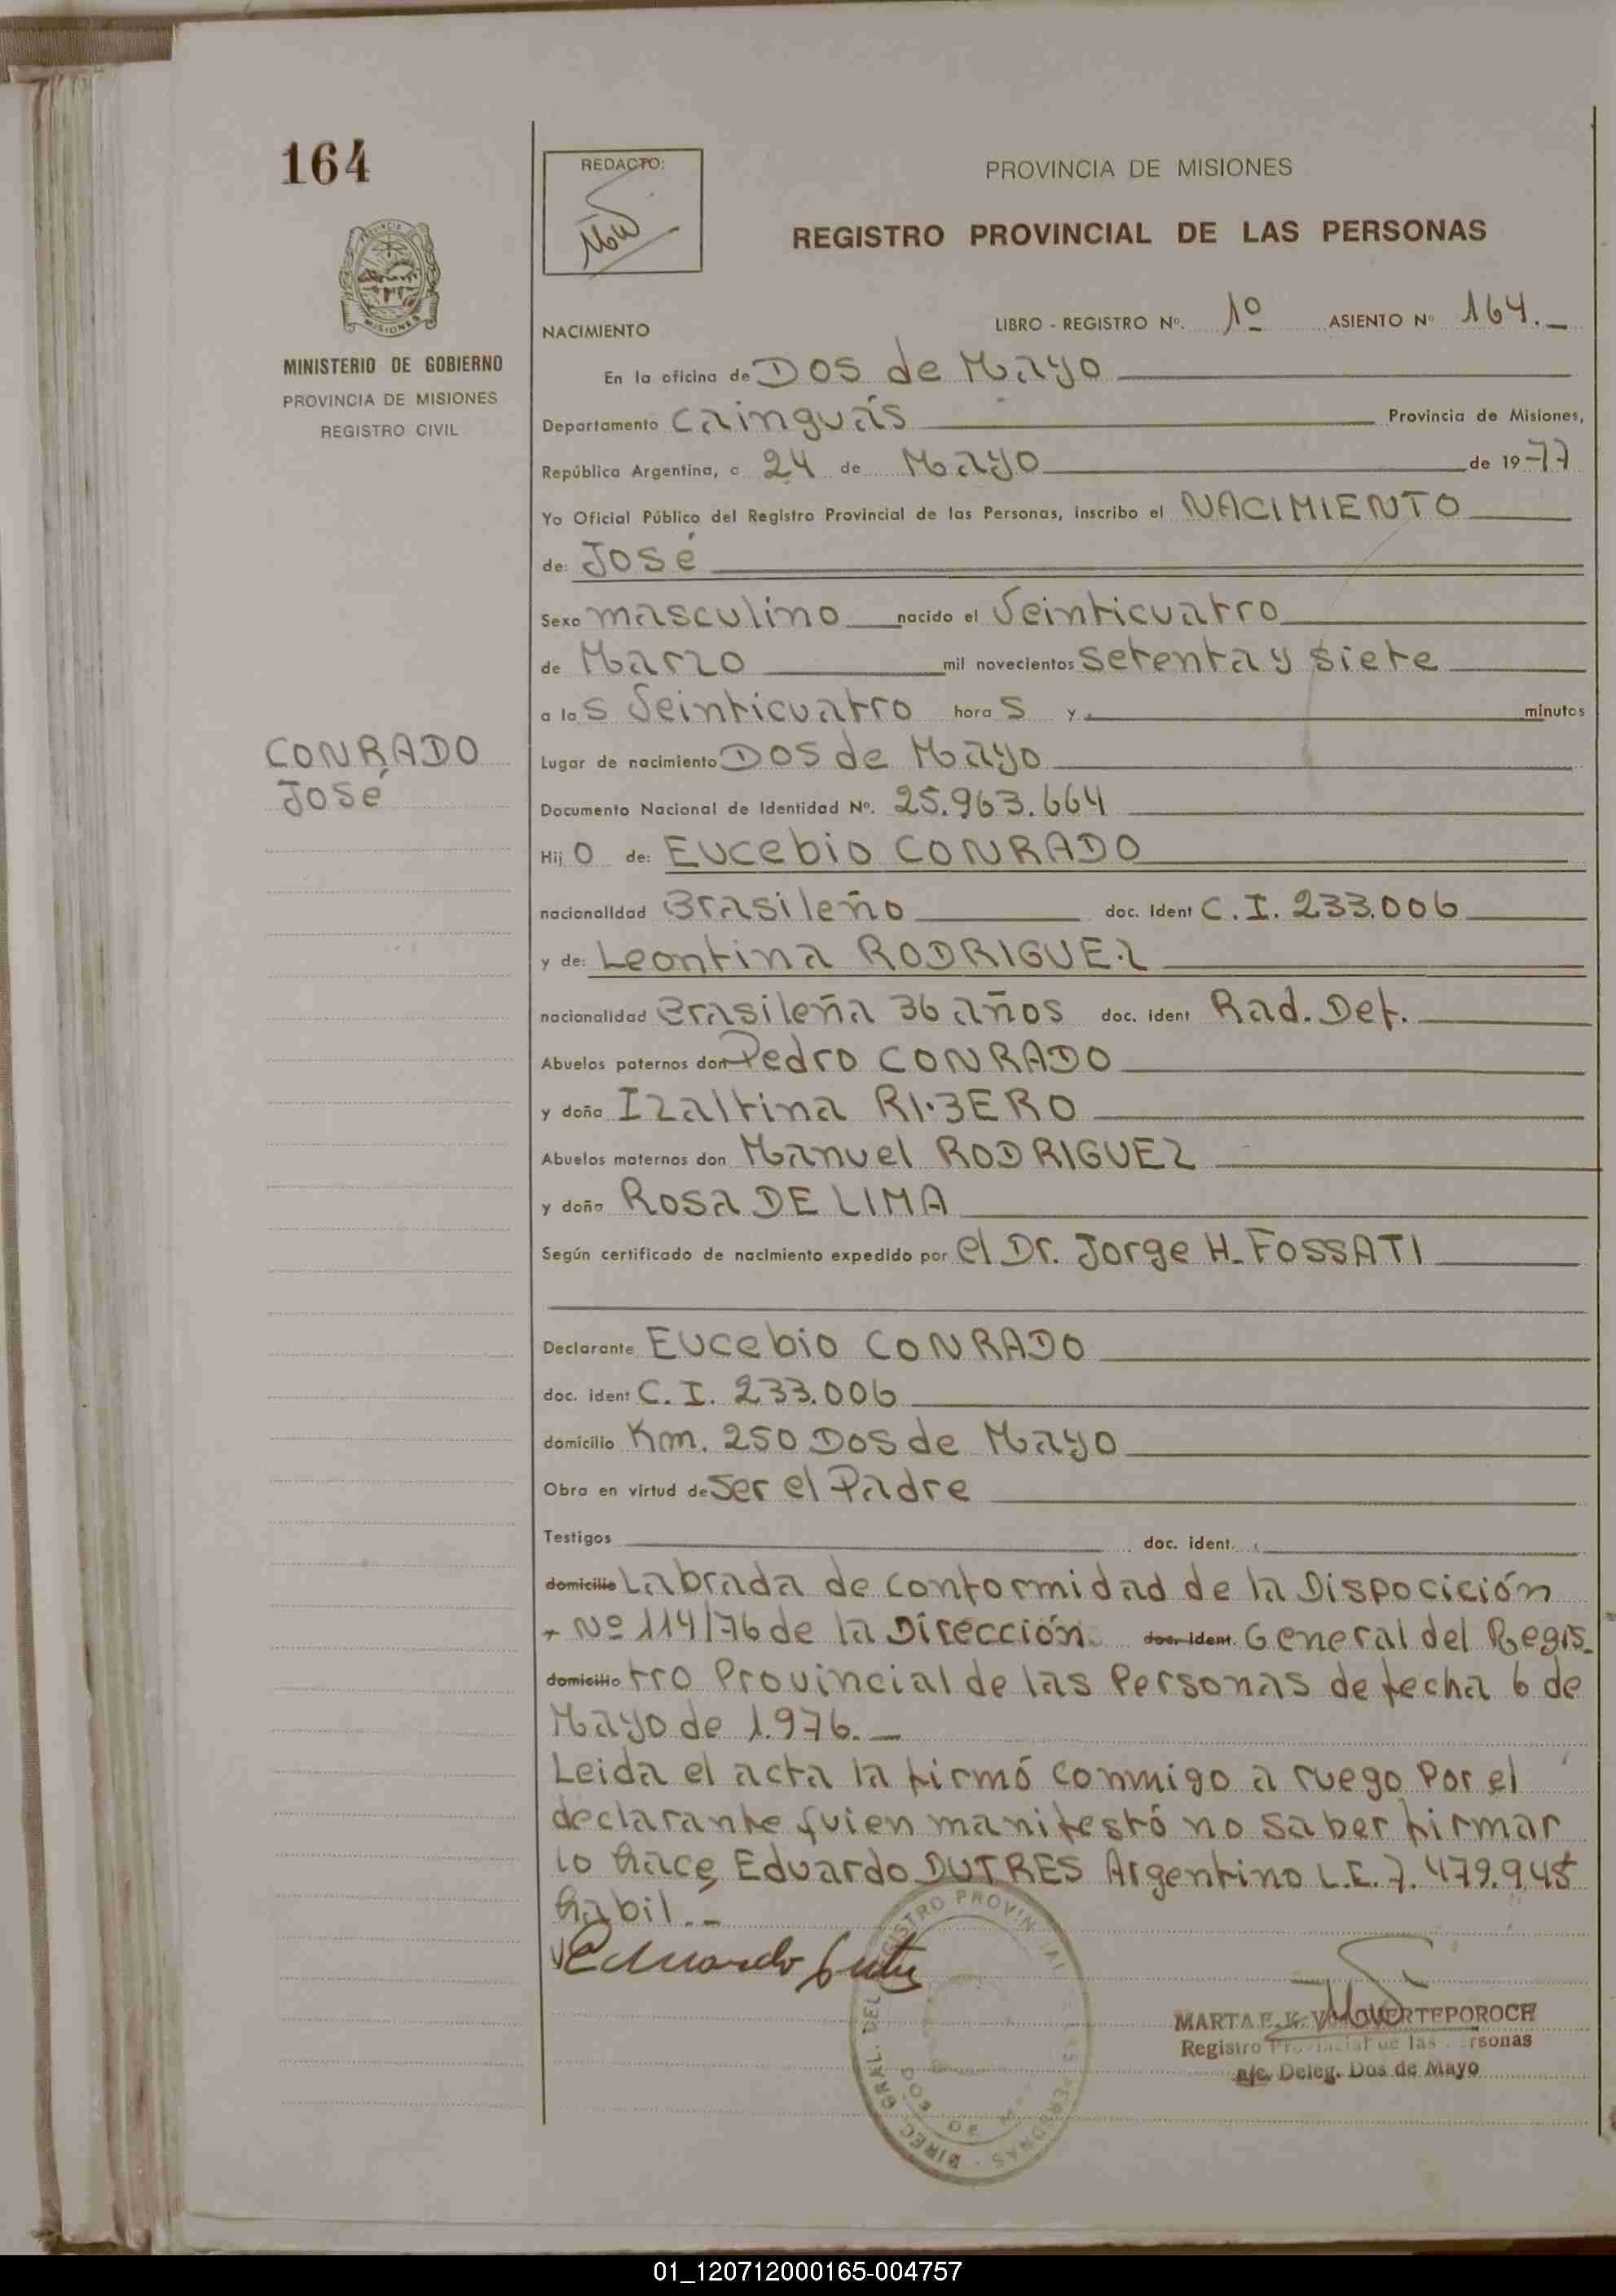 164
REDACTO:
PROVINCIA DE MISIONES
REGISTRO PROVINCIAL DE LAS PERSONAS
MISIONES
MINISTERIO DE GOBIERNO
PROVINCIA DE MISIONES
REGISTRO CIVIL
NACIMIENTO LIBRO - REGISTRO Nº. 1º ASIENTO Nº 164.
En la oficina de Dos de Mayo
Departamento Cainguás Provincia de Misiones,
República Argentina, a 24 de Mayo de 1977
Yo Oficial Público del Registro Provincial de las Personas, inscribo el NACIMIENTO
de: José
Sexo masculino nacido el Veinticuatro
de Marzo mil novecientos setenta y siete
a las Veinticuatro horas y minutos
CONRADO
José
Lugar de nacimiento Dos de Mayo
Documento Nacional de Identidad Nº. 25.963.664
Hijo de: Eucebio CONRADO
nacionalidad Brasileño doc. ident C. I. 233.006
y de: Leontina RODRIGUEZ
nacionalidad Brasileña 36 años doc. ident Rad. Def.
Abuelos paternos don Pedro CONRADO
y doña Izaltina RIBERO
Abuelos maternos don Manuel RODRIGUEZ
y doña Rosa DE LIMA
Según certificado de nacimiento expedido por el Dr. Jorge H. FOSSATI
Declarante Eucebio CONRADO
doc. ident C. I. 233.006
domicilio Km. 250 Dos de Mayo
Obra en virtud de ser el Padre
Testigos doc. ident.
domicilio Labrada de conformidad de la Disposición
Nº 114/76 de la Dirección doc. ident. General del Regis-
domicilio tro Provincial de las Personas de fecha 6 de
Mayo de 1.976.
Leida el acta la firmó conmigo a ruego Por el
declarante quien manifestó no saber firmar
lo hace, Eduardo DUTRES Argentino L.E. 7.479.945
habil.
Eduardo Dutres
DIREC. GRAL. DEL REGISTRO PROVINCIAL DE LAS PERSONAS
DOS DE
Registro Provincial de las Personas
a/c. Deleg. Dos de Mayo
01_120712000165-004757